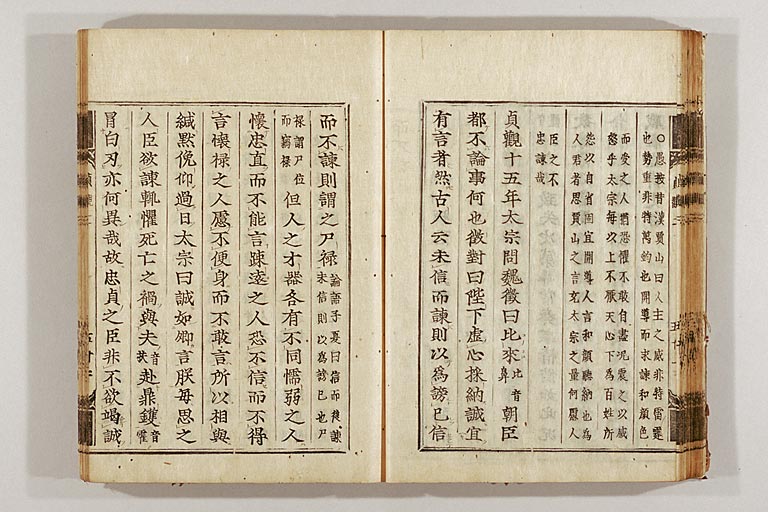 〇愚按昔漢賈山曰人主之威非特雷霆
也勢重非特萬鈞也開導而求諫和顔色
而受之人猶恐懼不敢自盡况震之以威
怒乎太宗每以上不厭天心下為百姓所
怨以自省固宜開導人言和顔聽納也為
人君者思賈山之言太宗之量何慮人
臣之不
忠諫哉
貞觀十五年太宗問魏徵曰比來比音鼻朝臣
都不論事何也徵對曰陛下虚心採納誠宜
有言者然古人云未信而諫則以為謗已信
而不諫則謂之尸禄論語子夏曰信而後諫未信則以為謗已也尸
禄謂尸位而竊禄但人之才器各有不同懦弱之人
懷忠直而不能言踈遠之人恐不信而不得
言懷禄之人慮不便身而不敢言所以相與
緘默俛仰過日太宗曰誠如卿言朕每思之
人臣欲諫輒懼死亡之禍與夫音扶赴鼎鑊音霍
冒白刃亦何異哉故忠貞之臣非不欲竭誠